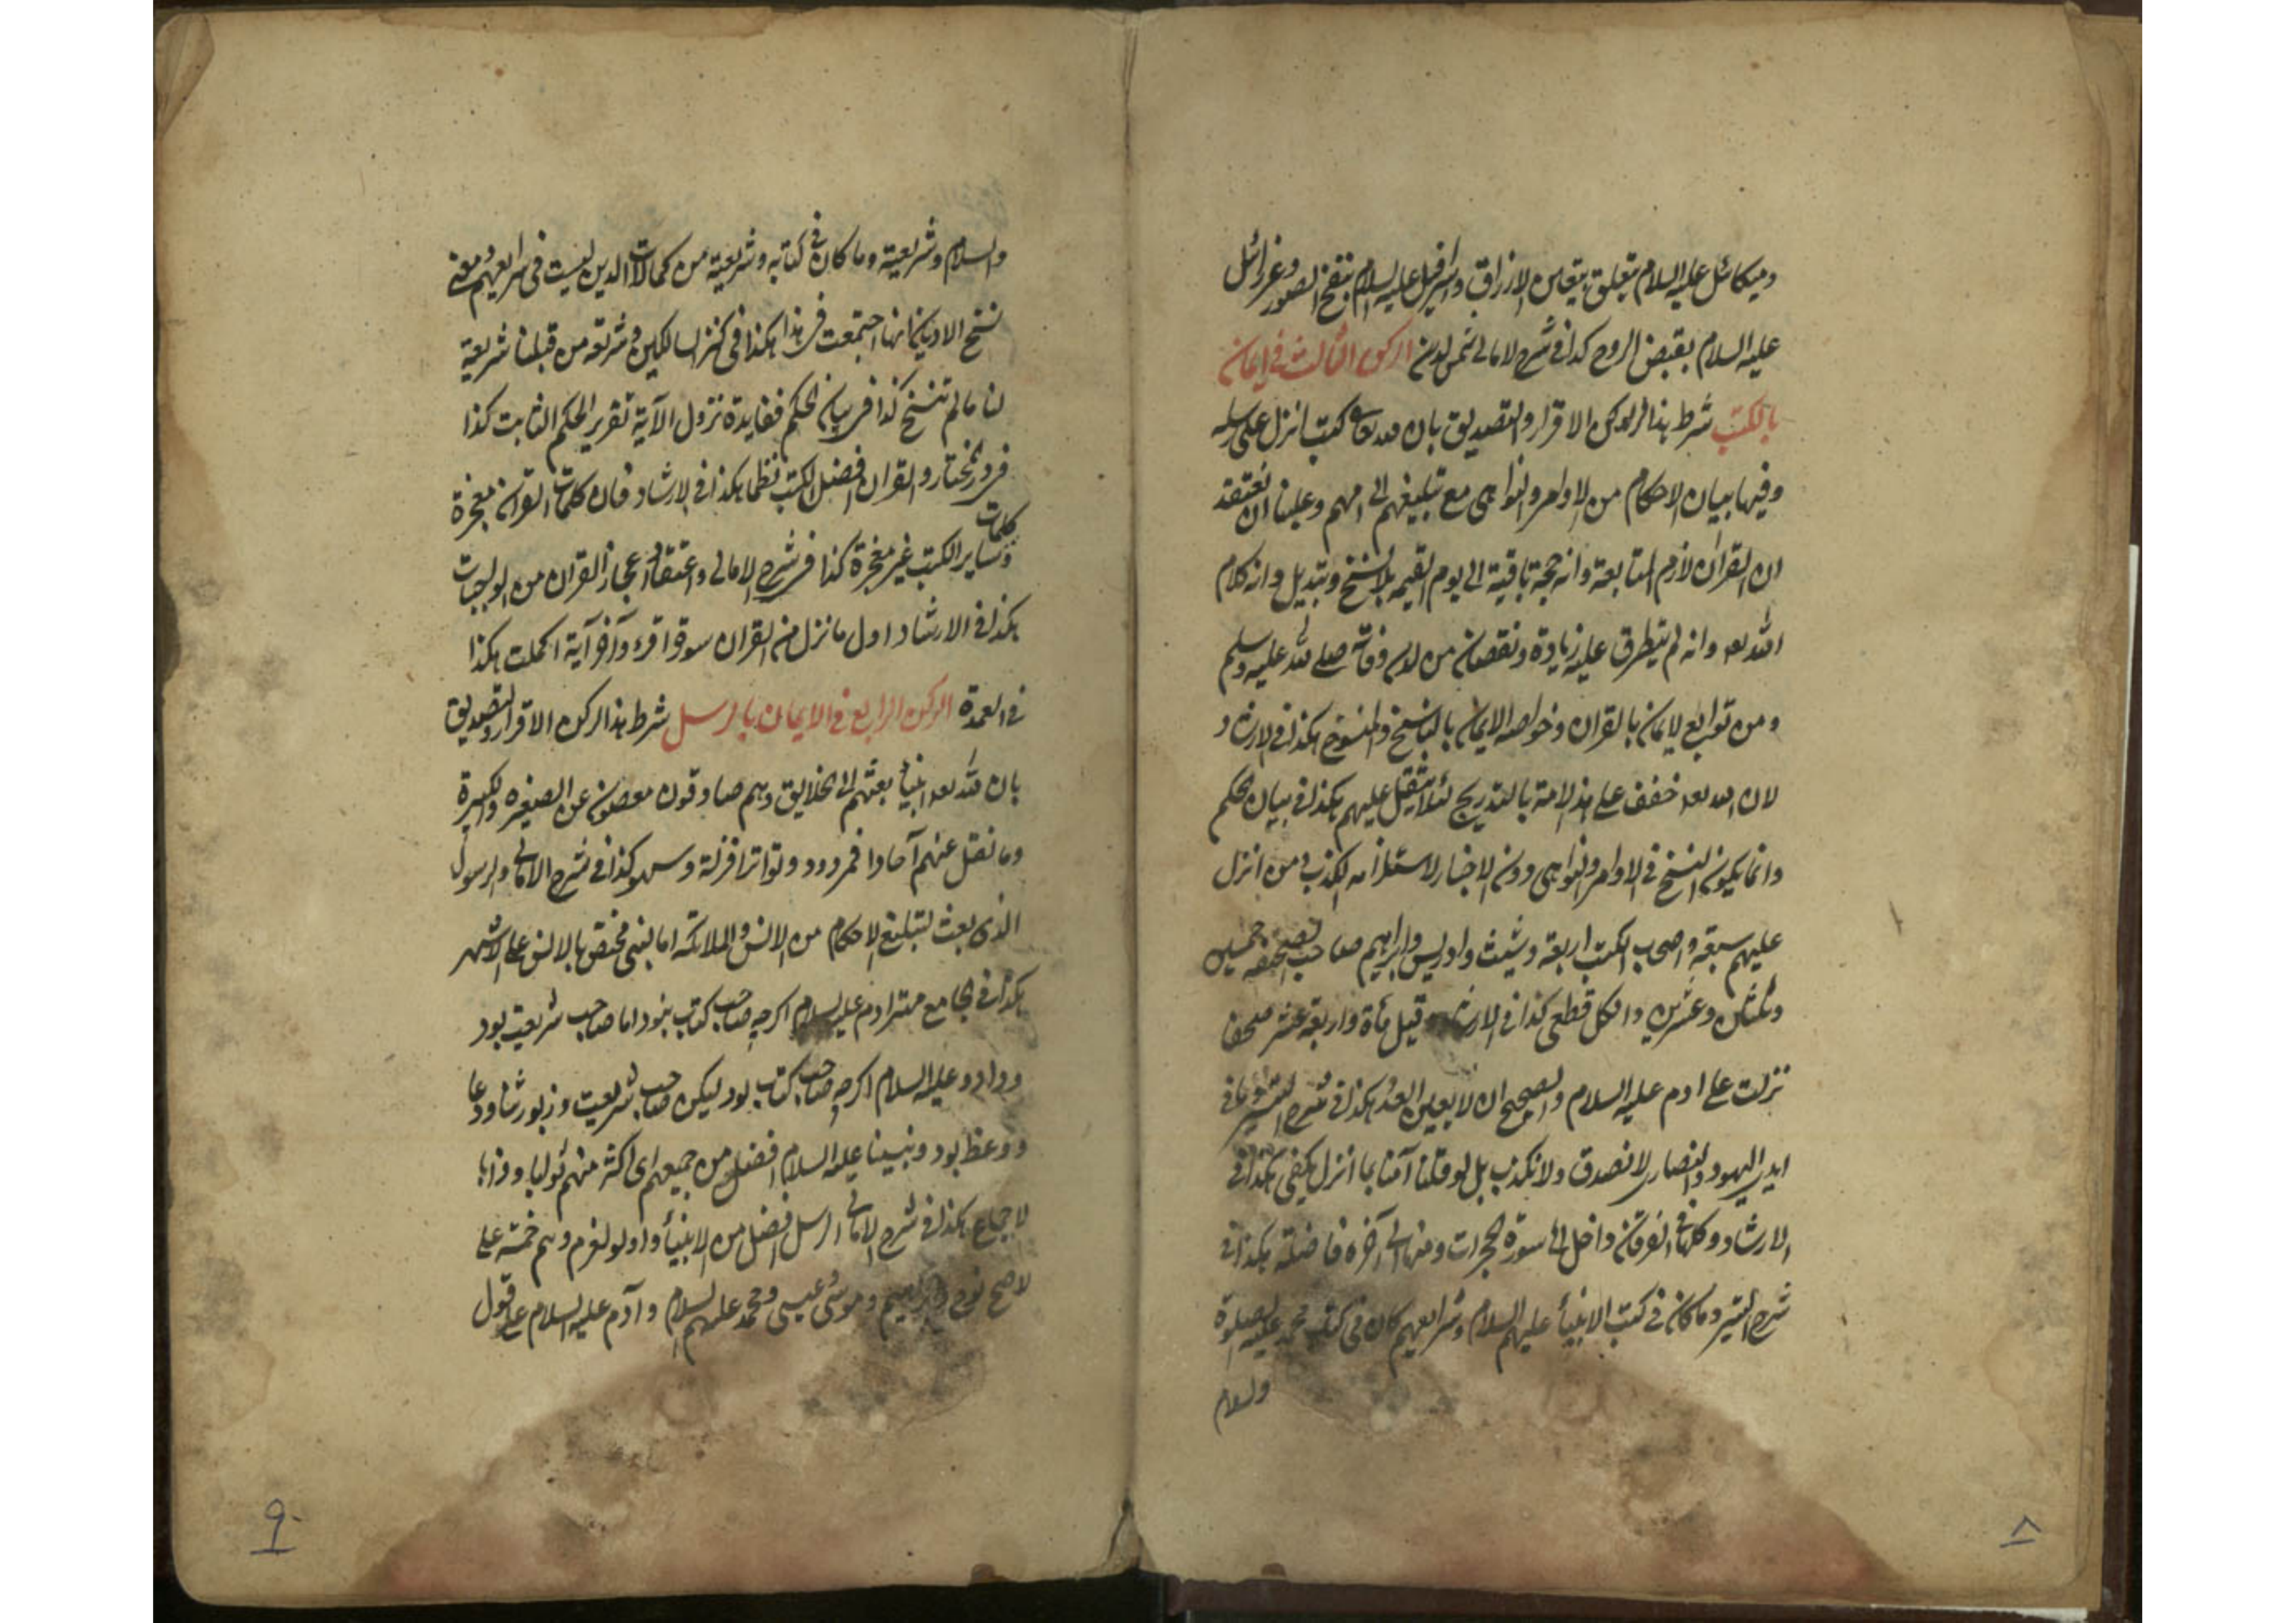 وميكائل عليه السلام يتعلق بتعين الارزاق واسرافيل عليه السلام بنفخ الصور وعزرائل
عليه السلام بقبض الروح كذا فى شرح الامالى شمس الدين الركن الثالث فى ايمان
بالكتب شرط هذا الركن الاقرار والتصديق بان لله تعا كتب انزل على رسله
وفيها بيان الاحكام من الاوامر والنواهى مع تبليغهم الى اممهم وعلينا ان نعتقد
ان القران لازم المتابعة وانه حجة باقية الى يوم القيمة بلا نسخ وتبديل وانه كلام
الله تعه وانه لم يتطرق عليه زيادة ونقصان من لدن وفاته صلى الله عليه وسلم
ومن توابع الايمان بالقران وخواصه الايمان بالناسخ والمنسوخ هكذا فى الارشاد
لان الله تعه خفف على هذا الامة بالتدريج لئلا يثقل عليهم هكذا فى بيان الحكم
وانما يكون النسخ فى الاوامر والنواهى دون الاخبار لاستلزامه الكذب ومن انزل
عليهم سبعة واصحاب الكتب اربعة وشيث وادريس وابراهيم صاحب الصحيفه خمسين
وثلثين وعشرين والكل قطعى كذا فى الارشاد وقيل مأة واربعة عشر صحفا
نزلت على ادم عليه السلام والصحيح ان لا يعين العدد هكذا فى شرح السير وما فى
ايدى اليهود والنصارى لا نصدق ولا نكذب بل لو قلنا آمنا بما انزل يكفى هكذا فى
الارشاد وكلها فى الفرقان داخل الى سورة الحجرات ومنها الى آخره فاضلة هكذا فى
شرح السير وما كان فى كتب الانبياء عليهم السلام وشرايعهم كان فى كتب محمد عليه الصلوة
والسلام
٨
والسلام وشريعية وما كان فى كتابه وشريعية من كمالات الدين ليست فى شرايعهم ومعنى
نسخ الاديان انها اجتمعت فى هذا هكذا فى كنز السالكين وشريعة من قبلنا شريعة
لنا مالم تنسخ كذا فى بيان الحكم ففايدة نزول الآية تقرير الحكم الثابت كذا
فى در المختار والقران افضل الكتب نظما هكذا فى الارشاد فان كلمات القران معجزة
كلمات
وساير الكتب غير معجزة كذا فى شرح الامالى واعتقاد اعجاز القران من الواجبات
هكذا فى الارشاد اول ما نزل من القران سورة اقرء وآخر آية اكملت هكذا
فى العمدة الركن الرابع فى الايمان بالرسل شرط هذا الركن الاقرار والتصديق
بان لله تعه انبياء بعثهم الى الخلايق وهم صادقون معصون عن الصغيره والكبيرة
وما نقل عنهم آحادا فمردود وتواترا فزلة وسهو كذا فى شرح الامالى والرسول
الذى بعث لتبليغ الاحكام من الانس والملائكة اما النبى مختص بالانس على الاشهر
هكذا فى الجامع مهتر ادم عليه السلام اكرچه صاحب كتاب نبود اما صاحب شريعيت بود
وداود عليه السلام اكرچه صاحب كتاب بود ليكن صاحب شريعيت وزبور شا ودعا
ووعظ بود ونبينا عليه السلام افضل من جميعهم اى اكثر منهم ثوابا
لاجماع هكذا فى شرح الامالى الرسل افضل من الانبياء واولو لعزم وهم خمسة على
لاصح نوح وابراهيم وموسى وعيسى ومحمد عليهم السلام وآدم عليه السلام على قول
٩